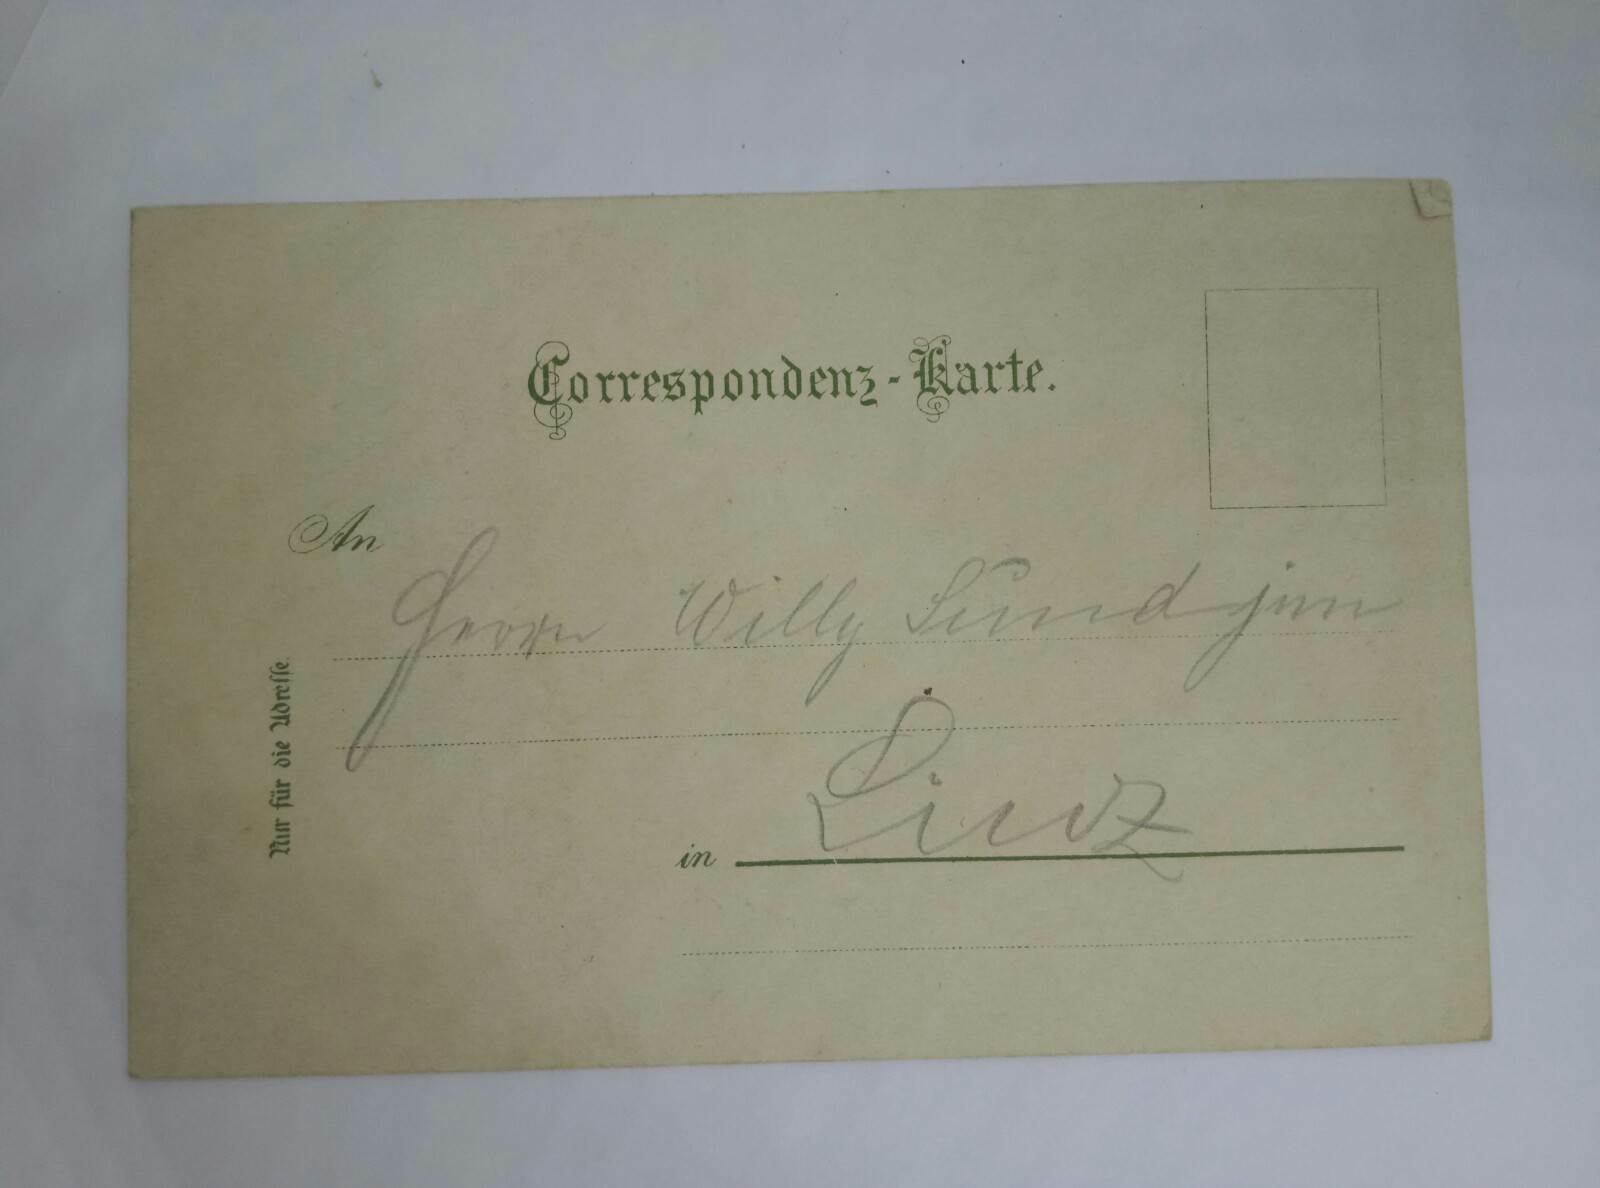 Correspondenz-Karte.
An
Herrn Willy Sund jun
in Linz
Nur für die Adresse.